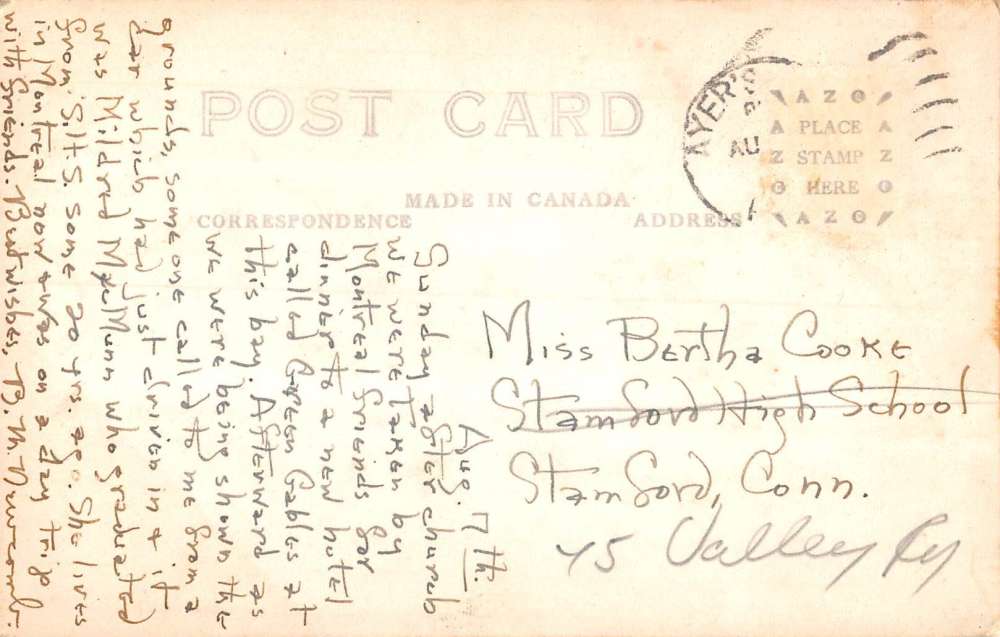 POST CARD
MADE IN CANADA
CORRESPONDENCE
ADDRESS
AYER'S
AU
AZO
A PLACE A
Z STAMP Z
O HERE O
AZO
Aug. 7th.
Sunday after church
we were taken by
Montreal friends for
dinner to a new hotel
called Green Gables at
this bay. Afterward as
we were being shown the
grounds, someone called to me from a
car which had just driven in & it
was Mildred McMunn who graduated
from S.H.S. some 20 yrs. ago. She lives
in Montreal now & was on a day trip
with friends. Best wishes, B. M.
Miss Bertha Cooke
Stamford High School
Stamford, Conn.
45 Valley